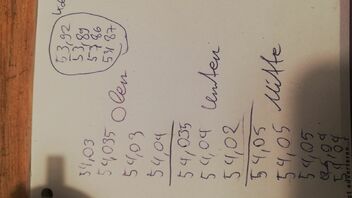 53,92
53,89
57,86
54,87
54,03
54,035 Oben
54,03
54,04
54,035
54,04 Unten
54,02
54,05
54,05 Mitte
54,05
54,04